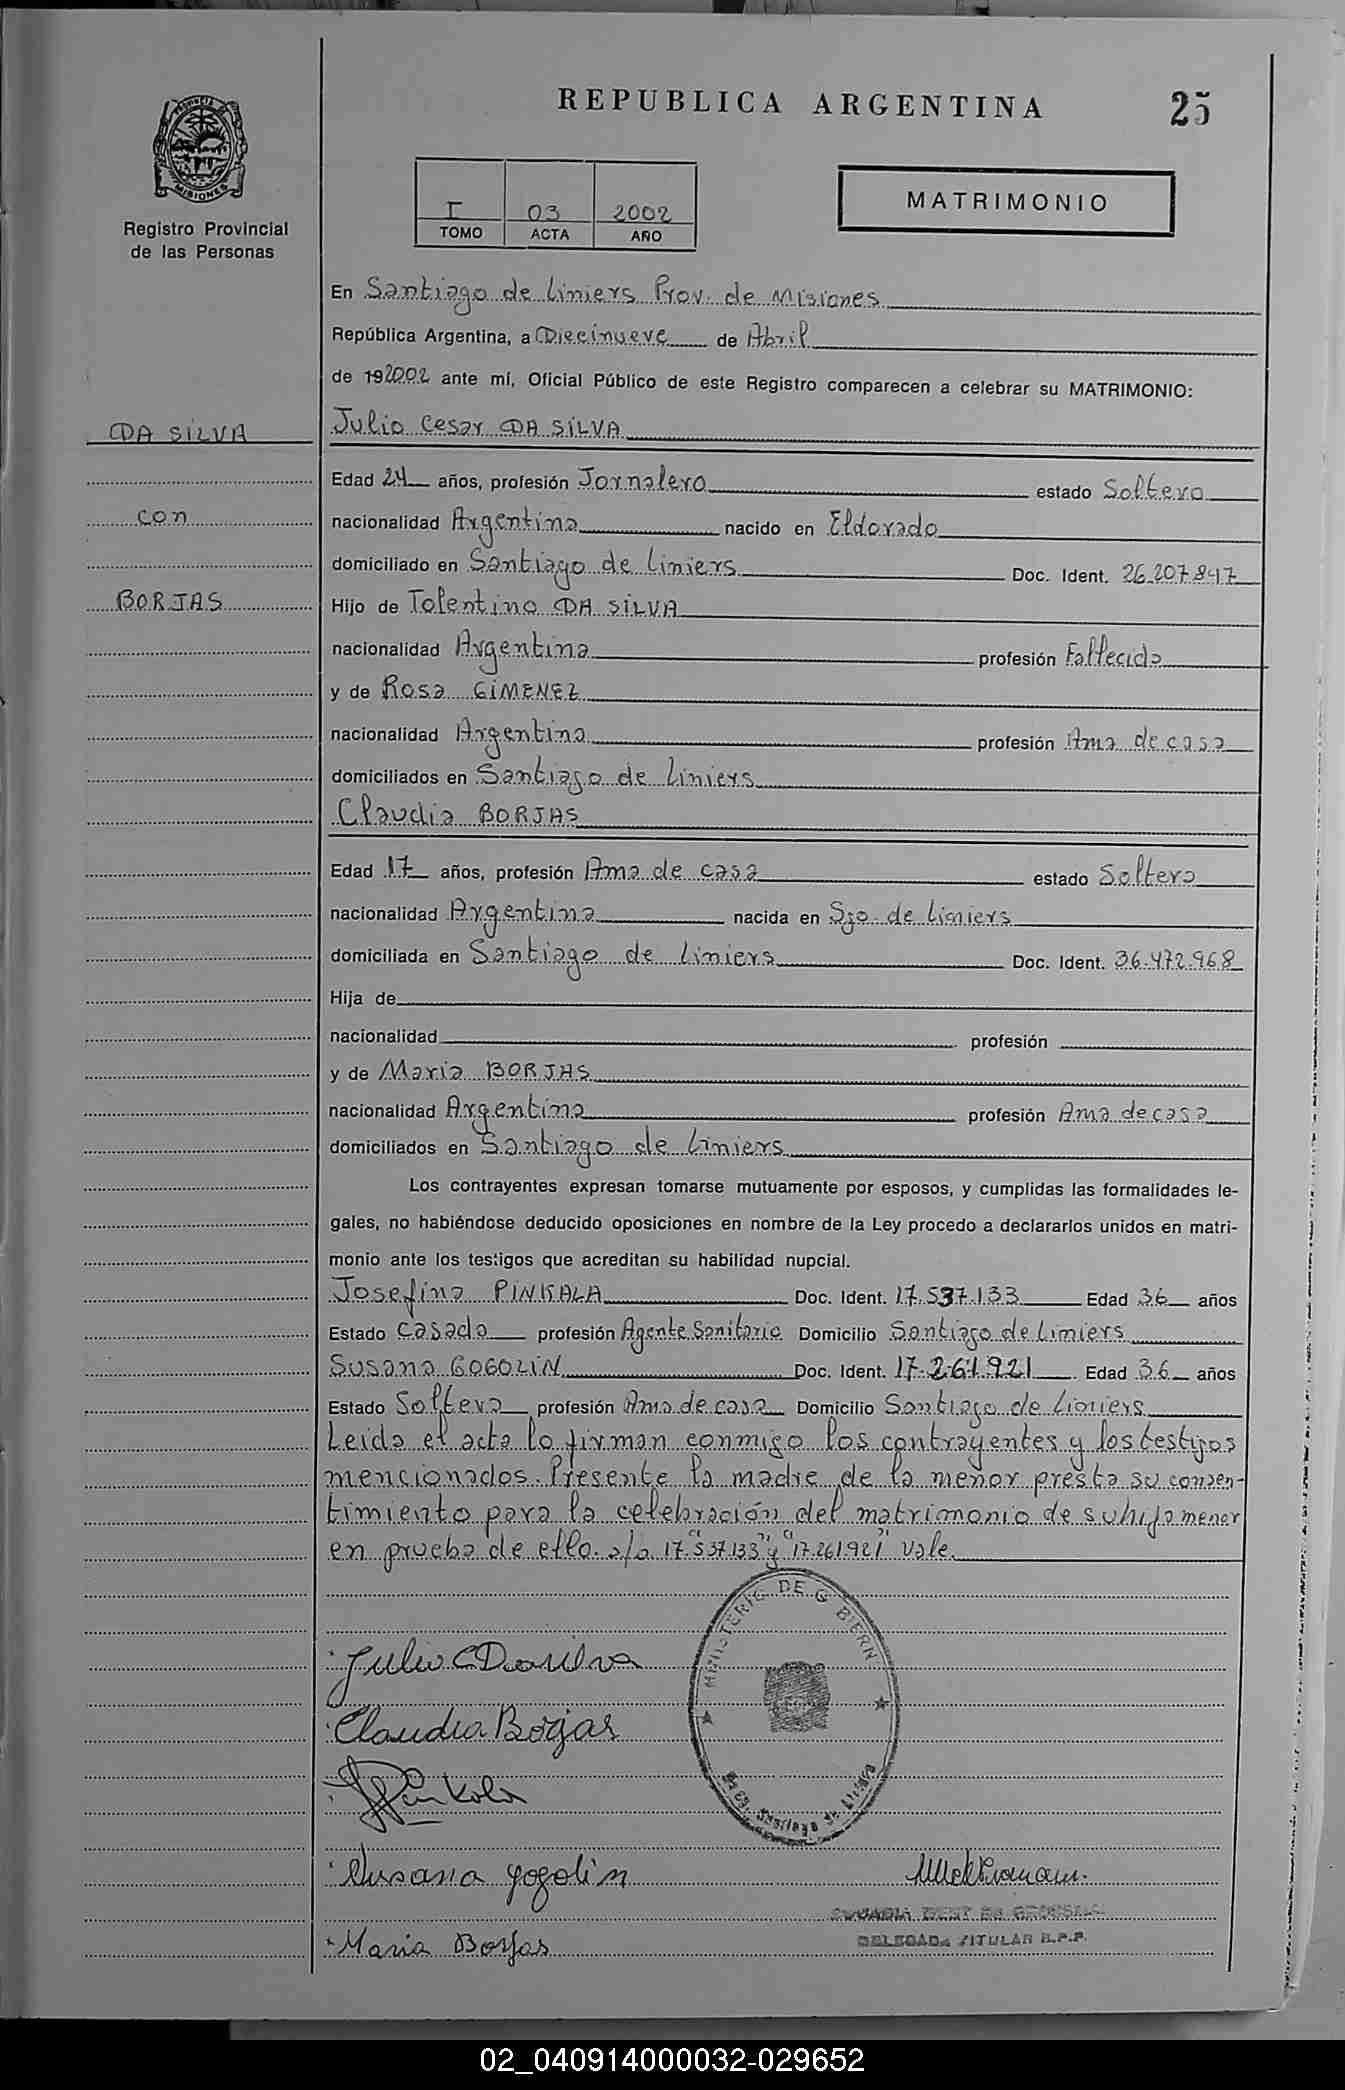 REPUBLICA ARGENTINA
25
PROVINCIA DE
MISIONES
Registro Provincial
de las Personas
I 03 2002
TOMO ACTA AÑO
MATRIMONIO
En Santiago de Liniers Prov. de Misiones
República Argentina, a Diecinueve de Abril
de 192002 ante mí, Oficial Público de este Registro comparecen a celebrar su MATRIMONIO:
DA SILVA
con
BORJAS
Julio Cesar DA SILVA
Edad 24 años, profesión Jornalero estado Soltero
nacionalidad Argentina nacido en Eldorado
domiciliado en Santiago de Liniers Doc. Ident. 26.207.847
Hijo de Tolentino DA SILVA
nacionalidad Argentina profesión Fallecido
y de Rosa GIMENEZ
nacionalidad Argentina profesión Ama de casa
domiciliados en Santiago de Liniers
Claudia BORJAS
Edad 17 años, profesión Ama de casa estado Soltera
nacionalidad Argentina nacida en Sgo. de Liniers
domiciliada en Santiago de Liniers Doc. Ident. 36.472.968
Hija de
nacionalidad profesión
y de Maria BORJAS
nacionalidad Argentina profesión Ama de casa
domiciliados en Santiago de Liniers
Los contrayentes expresan tomarse mutuamente por esposos, y cumplidas las formalidades le-
gales, no habiéndose deducido oposiciones en nombre de la Ley procedo a declararlos unidos en matri-
monio ante los testigos que acreditan su habilidad nupcial.
Josefina PINKALA Doc. Ident. 17.537.133 Edad 36 años
Estado Casada profesión Agente Sanitario Domicilio Santiago de Liniers
Susana GOGOLIN Doc. Ident. 17.261.921 Edad 36 años
Estado Soltera profesión Ama de casa Domicilio Santiago de Liniers
Leida el acta lo firman conmigo los contrayentes y los testigos
mencionados. Presente la madre de la menor presta su consen-
timiento para la celebración del matrimonio de su hija menor
en prueba de ello. s/a 17."537.133" y "17.261.921" Vale.
MINISTERIO DE G BIERN
Santiago de Liniers
Julio C Da silva
Claudia Borjas
Pinkala
Susana Gogolin
Maria Borjas
DELEGADA TITULAR R.P.P.
02_040914000032-029652